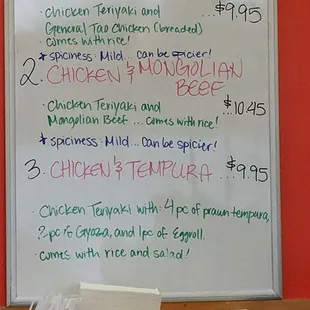 · Chicken Teriyaki and ...$9.95
General Tao Chicken (breaded)
· comes with rice!
* spiciness: Mild... can be spicier!
2. CHICKEN & MONGOLIAN
BEEF
· Chicken Teriyaki and ...$10.45
Mongolian Beef ... comes with rice!
* spiciness: Mild... can be spicier!
3. CHICKEN & TEMPURA ...$9.95
· Chicken Teriyaki with 4pc of prawn tempura,
2pc of Gyoza, and 1pc of Eggroll.
· comes with rice and salad!